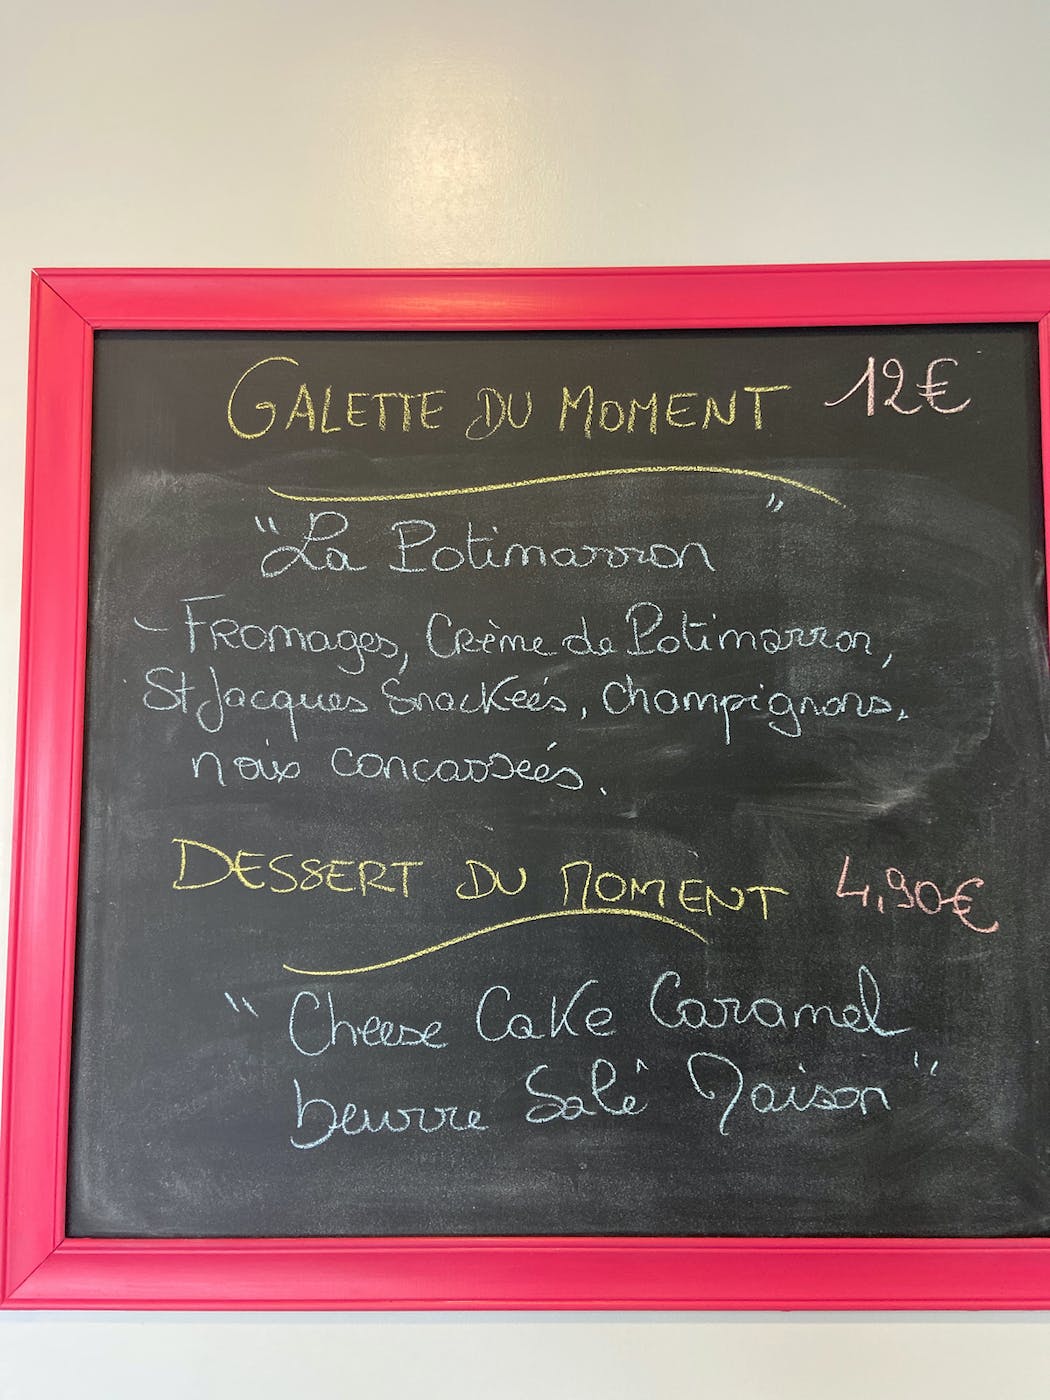 GALETTE DU MOMENT 12€
"La Potimarron"
- FROMAGES, CRème de Potimarron,
St Jacques SnacKeés, champignons,
noix concasseés.
DESSERT DU MOMENT 4,90€
"Cheese CaKe Caramel
beurre Salé Maison"